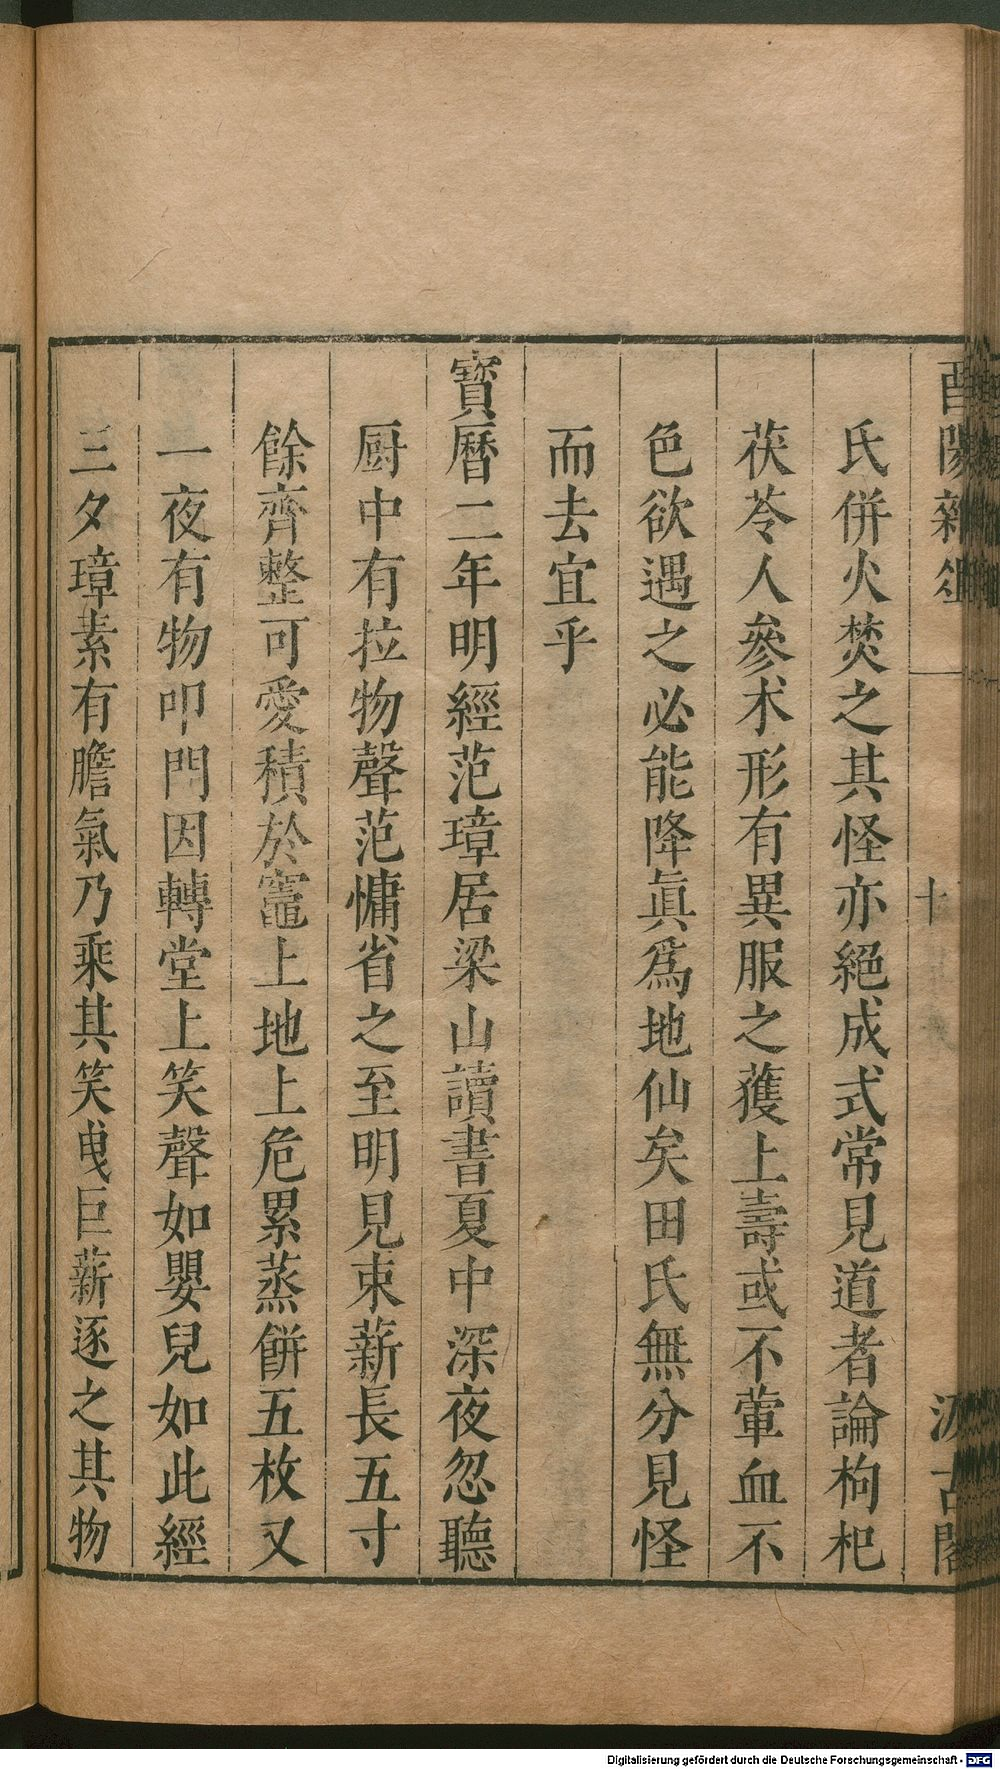 酉陽雜俎 十 汲古閣
氏併火焚之其怪亦絕成式常見道者論枸杞
茯苓人參朮形有異服之獲上壽或不葷血不
色欲遇之必能降眞爲地仙矣田氏無分見怪
而去宜乎
寶曆二年明經范璋居梁山讀書夏中深夜忽聽
厨中有拉物聲范慵省之至明見束薪長五寸
餘齊整可愛積於竈上地上危累蒸餅五枚又
一夜有物叩門因轉堂上笑聲如嬰兒如此經
三夕璋素有膽氣乃乘其笑曵巨薪逐之其物
Digitalisierung gefördert durch die Deutsche Forschungsgemeinschaft - DFG